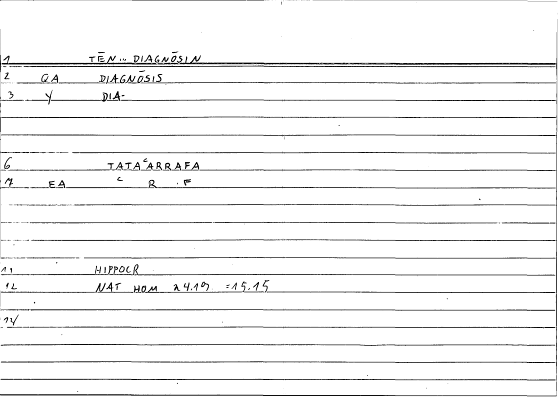 1 TĒN... DIAGNŌSIN
2 QA DIAGNŌSIS
3 Y DIA-
6 TATAᶜARRAFA
7 EA ᶜ R . F
11 HIPPOCR
12 NAT HOM 24.19 =15.15
14